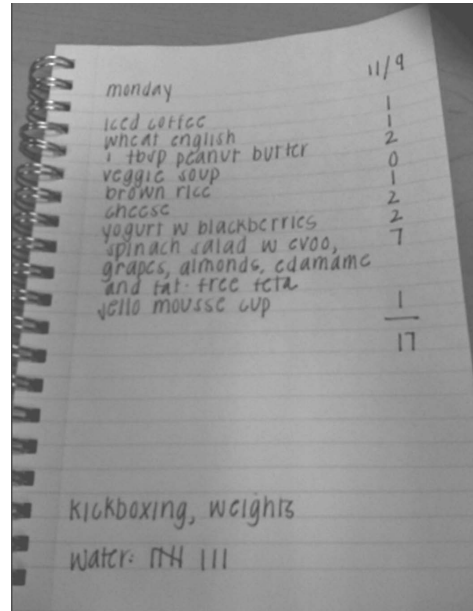 monday 11/9
iced coffee 1
wheat english 1
1 tbsp peanut butter 2
veggie soup 0
brown rice 1
cheese 2
yogurt w blackberries 2
spinach salad w evoo, 7
grapes, almonds, edamame
and fat-free feta
jello mousse cup 1
17
kickboxing, weights
water: 𝍸 III